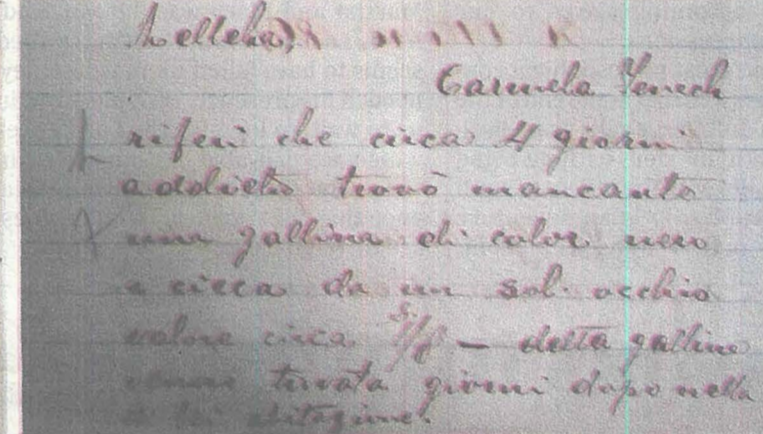 Mellieha, " " " " "
Carmela Fenech
riferì che circa 4 giorni
addietro trovò mancante
una gallina di color nero
e cieca da un sol occhio
valore circa — detta gallina
venne trovata giorni dopo nella
di lei abitazione.